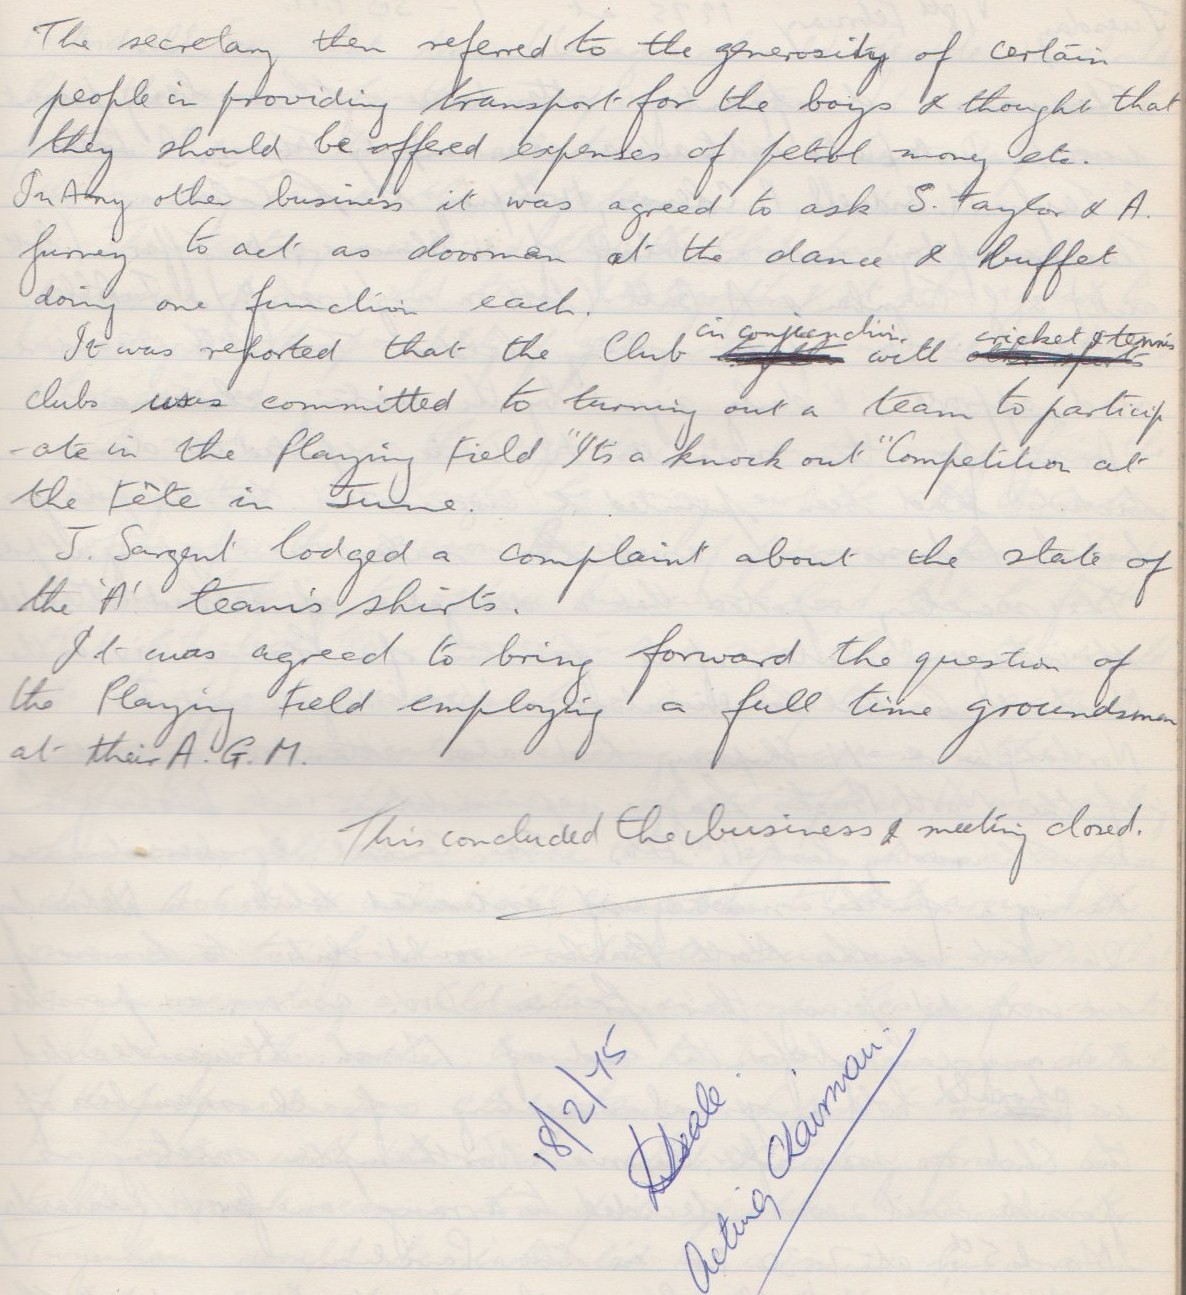 The secretary then referred to the generosity of certain
people in providing transport for the boys & thought that
they should be offered expenses of petrol money etc.
In Any other business it was agreed to ask S. Taylor & A.
Furney to act as doorman at the dance & buffet
doing one function each.
It was reported that the Club in conjunction with cricket & tennis
clubs was committed to turning out a team to particip
-ate in the Playing Field "It's a knock out" Competition at
the Fête in June.
J. Sargent lodged a complaint about the state of
the 'A' team's shirts.
It was agreed to bring forward the question of
the Playing Field employing a full time groundsman
at their A.G.M.
This concluded the business & meeting closed.
18/2/75
Acting Chairman.